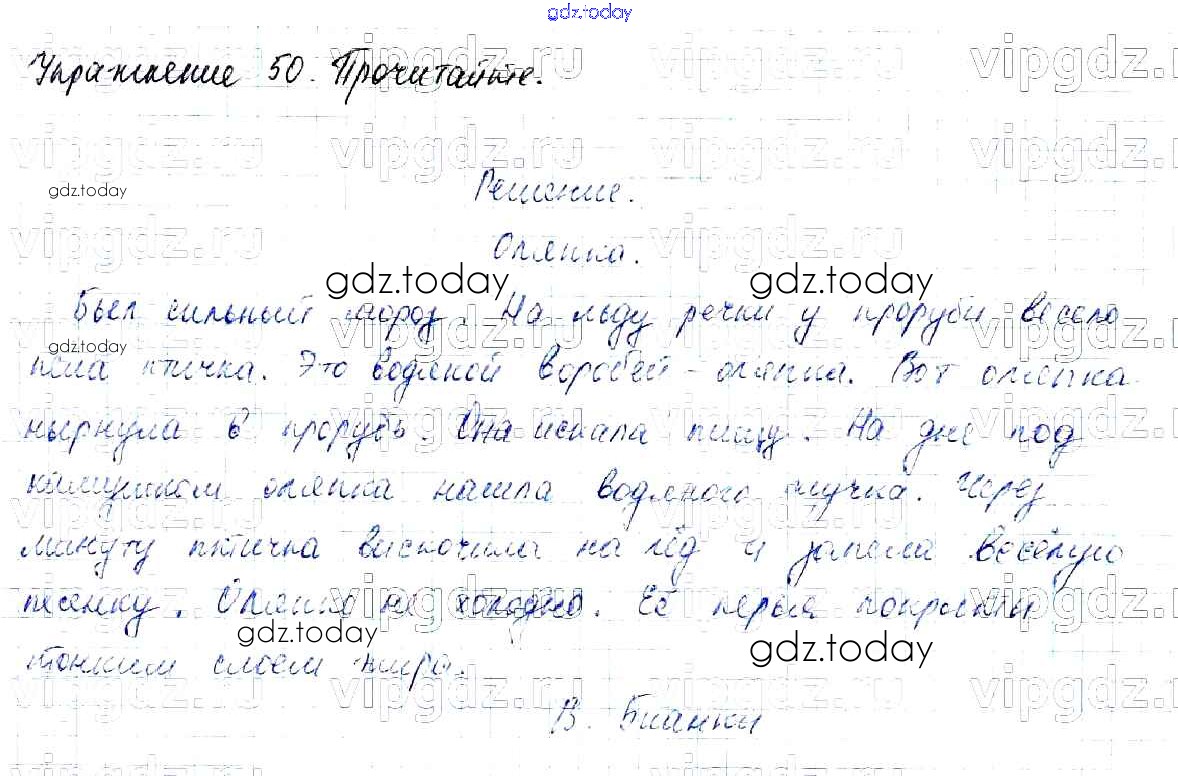 gdz.today
Упражнение 50. Прочитайте.
vipgdz.ru vipgdz.ru vipgdz.ru vipgdz
gdz.today
Решение.
Оляпка.
gdz.today gdz.today
Был сильный мороз. На льду речки у проруби весело
gdz.today
пела птичка. Это водяной воробей - оляпка. Вот оляпка
нырнула в прорубь. Она искала пищу. На дне под
камушком оляпка нашла водяного жучка. Через
минуту птичка выскочила на лёд и запела весёлую
песенку. Оляпке не холодно. Её перья покрыты
gdz.today gdz.today
тонким слоем жира.
В. Бианки